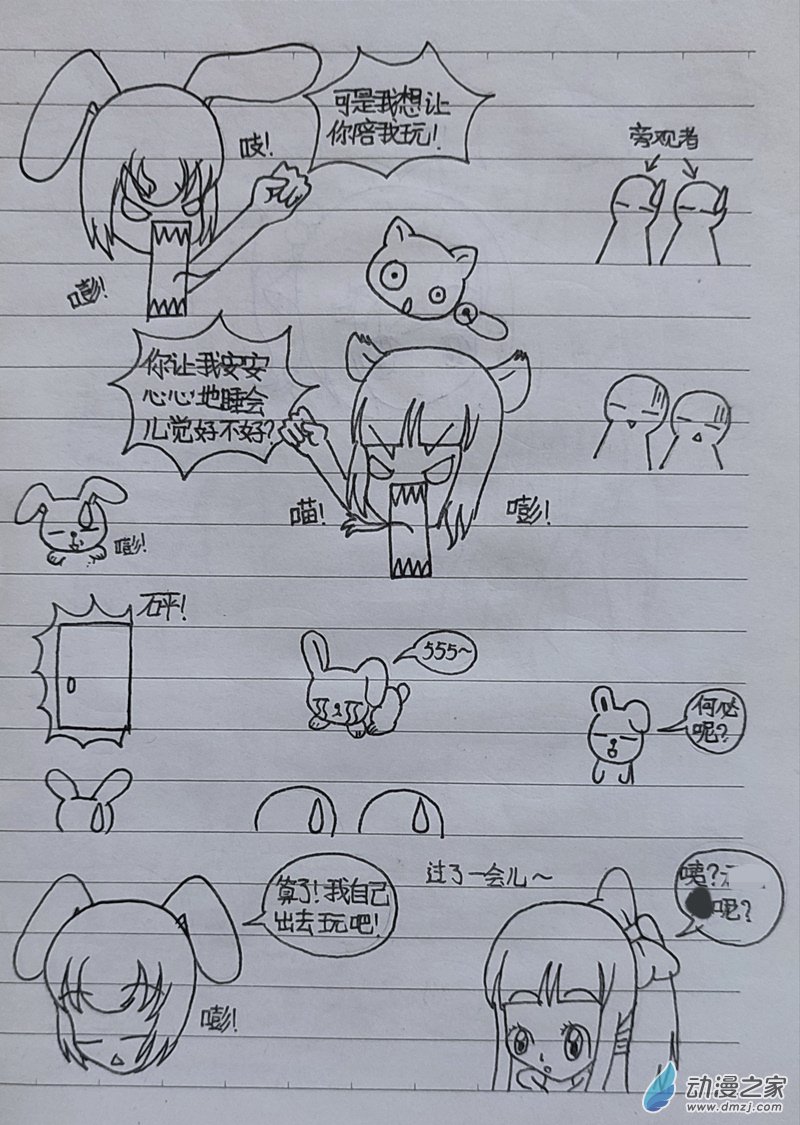 可是我想让
你陪我玩！
吱！
旁观者
嘭！
你让我安安
心心地睡会
儿觉好不好？
喵！
嘭！
嘭！
砰！
555~
何必
呢？
过了一会儿~
算了！我自己
出去玩吧！
咦？
呢？
嘭！
动漫之家
www.dmzj.com